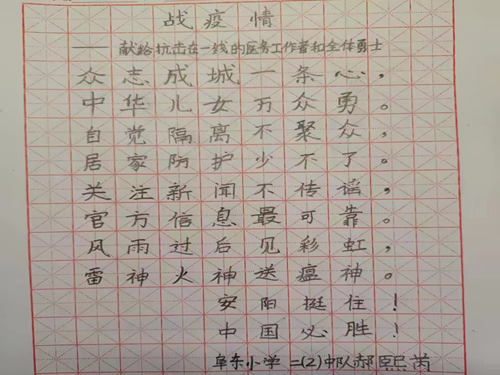 战疫情
——献给抗击在一线的医务工作者和全体勇士
众志成城一条心，
中华儿女万众勇。
自觉隔离不聚众，
居家防护少不了。
关注新闻不传谣，
官方信息最可靠。
风雨过后见彩虹，
雷神火神送瘟神。
安阳挺住！
中国必胜！
阜东小学二(2)中队郝熙芮